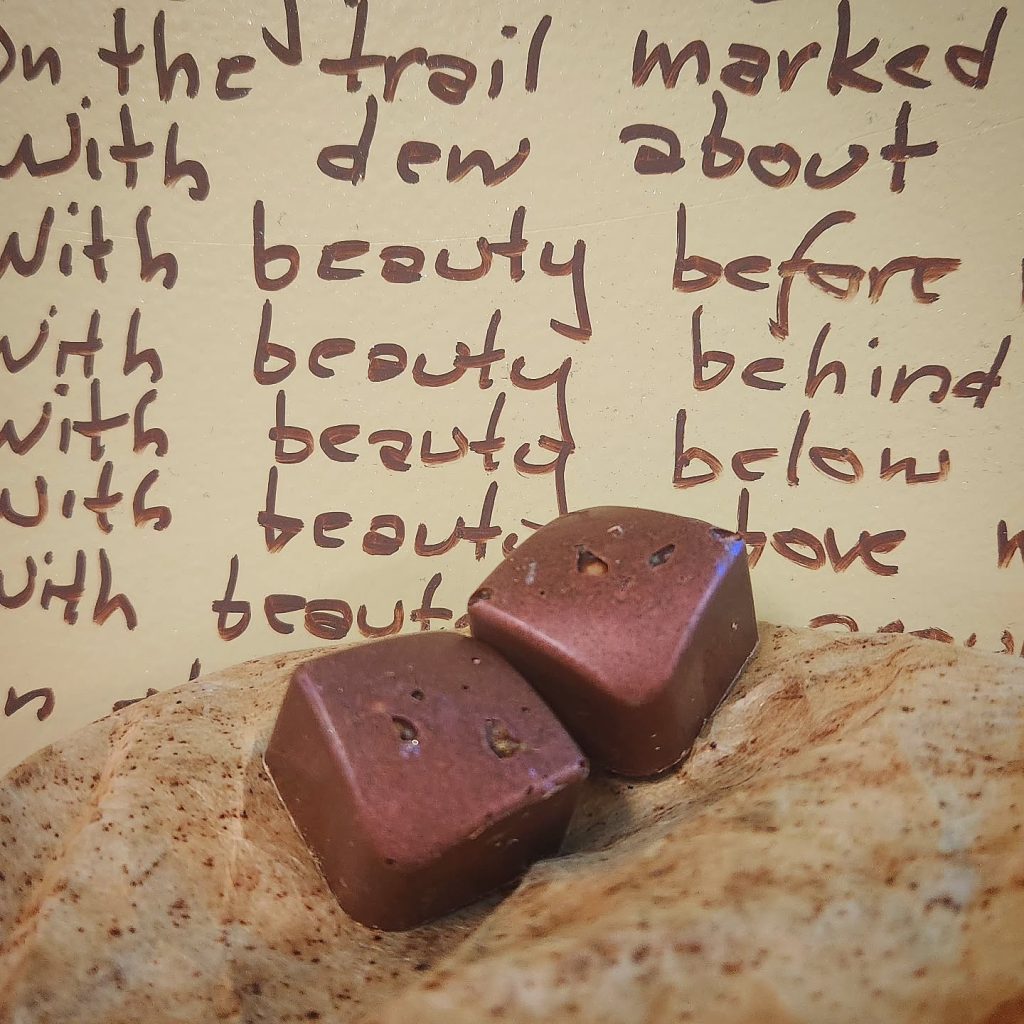 On the trail marked
with dew about
With beauty before
with beauty behind
with beauty below
with beauty above
with beauty